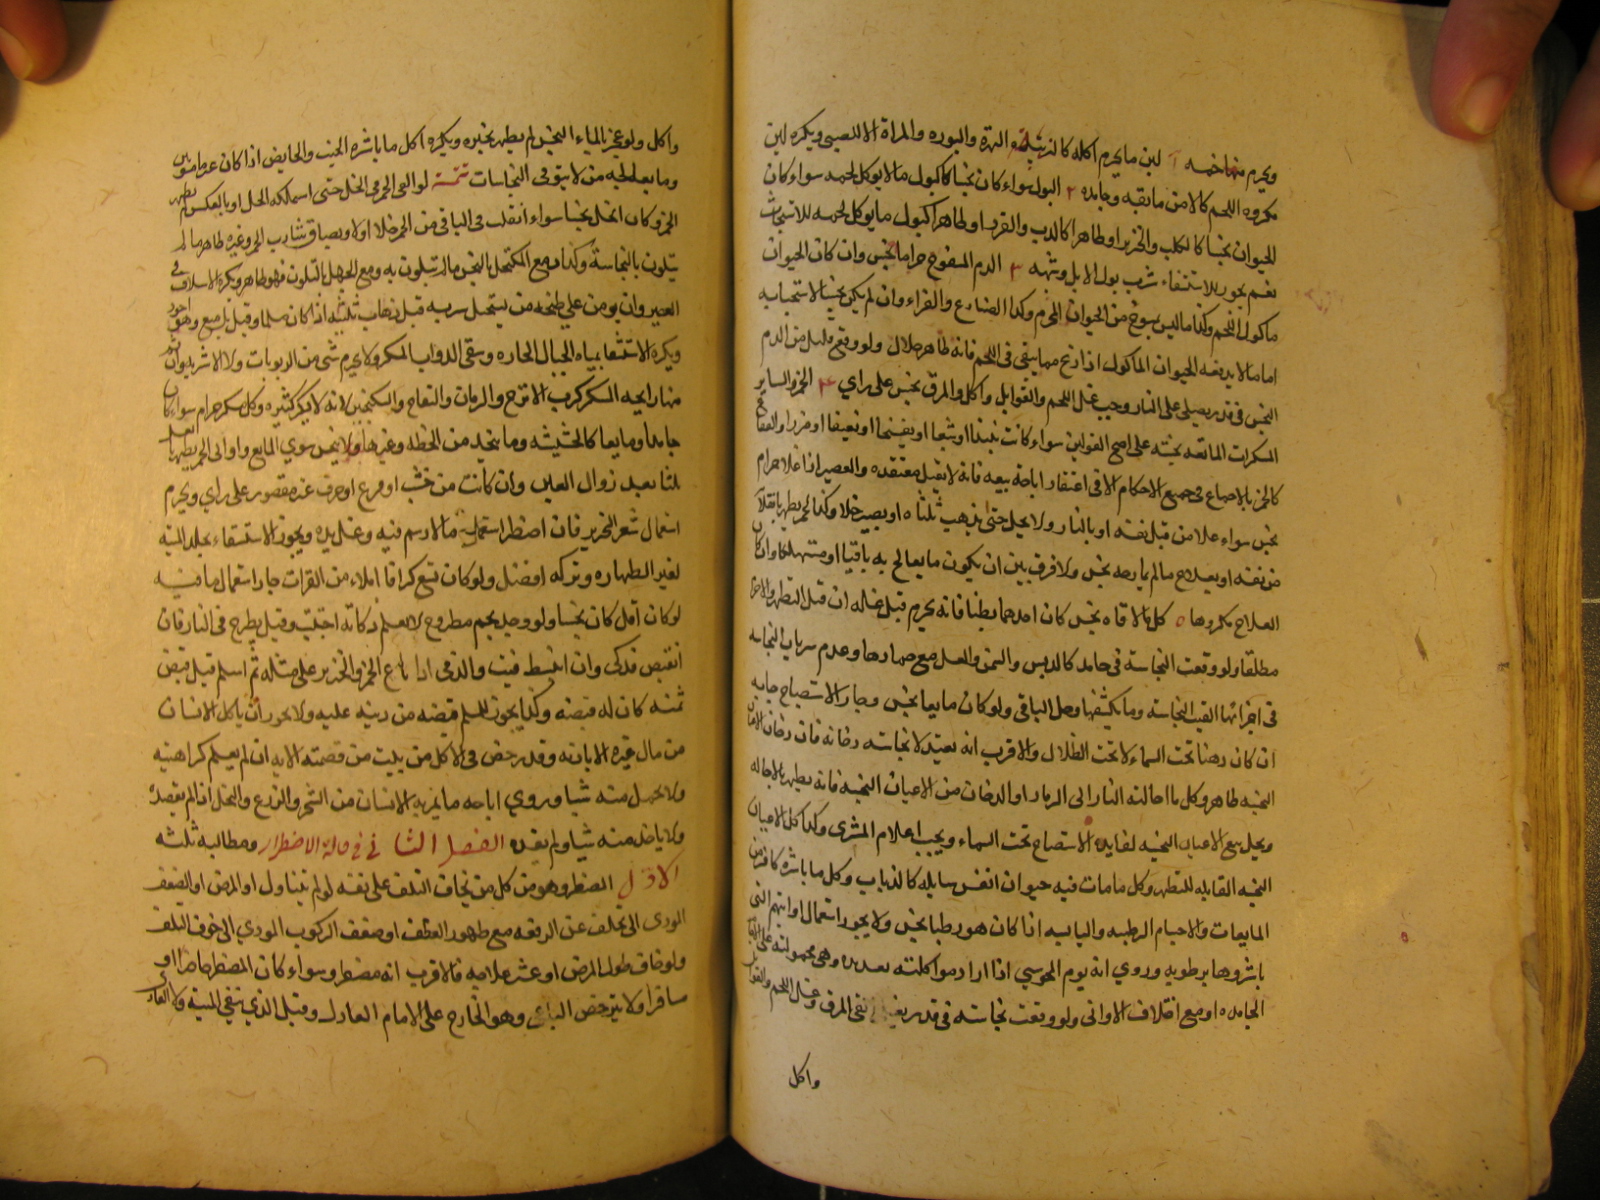 ويحرم منها خمسه آ لبن ما يحرم اكله كالذئبة و الهرة واللبوه والمراة الا للصبي ويكره لبن
مكروه اللحم كالاتن مايعه وجامده ٢ البول سواء كان نجسا كابوال ما لا يوكل لحمه سواء كان
الحيوان نجسا كالكلب والخنزير او طاهرا كالدب والقرد او طاهرا كبول ما يوكل لحمه للاستخباث
نعم يجوز للاستشفاء شرب بول الابل وشبهه ٣ الدم المسفوح حرام نجس وان كان الحيوان
ماكول اللحم وكذا ما ليس بمسفوح من الحيوان المحرم وكذا الضفادع والقراد وان لم يكن نجسا لاستخباثه
اما ما لا يدفعه الحيوان الماكول اذا ذبح مما يبقى في اللحم فانه طاهر حلال ولو وقع قليل من الدم
النجس في قدر يغلي على النار وجب غسل اللحم والتوابل واكل والمرق نجس على راي ٤ الخمر وساير
المسكرات المايعه نجسه على اصح القولين سواء كانت نبيذا او بتعا او فضيخا او نقيعا او مزرا والفقاع
كالخمر بالاجماع في جميع الاحكام الا في اعتقاد اباحة بيعه فانه لا يقتل معتقده والعصير اذا غلا حرام
نجس سواء غلا من قبل نفسه او بالنار ولا يحل حتى يذهب ثلثاه او يصير خلا وكذا الخمر يطهر بانقلابه
من نفسه او بعلاج ما لم يمازجه نجس ولا فرق بين ان يكون ما يعالج به باقيا او مستهلكا وان كان
العلاج مكروها ٥ كل ما لاقاه نجس كان احدهما رطبا فانه يحرم قبل غسله ان قبل التطهير والا حرم
مطلقا ولو وقعت النجاسة في جامد كالدبس والسمن والعسل مع جمادها وعدم سريان النجاسه
في اجزائها القيت النجاسه وما يكتنفها وحل الباقي ولو كان مايعا نجس وجاز الاستصباح به
ان كان دهنا تحت السماء لا تحت الظلال والاقرب انه تعبد لا نجاسه دخانه فان دخان الاعيان
النجسه طاهر وكل ما احالته النار الى الرماد او الدخان من الاعيان النجسه فانه يطهر بالاحاله
ويحل بيع الادهان النجسه لفايدة الاستصباح تحت السماء ويجب اعلام المشتري وكذا كل الاعيان
النجسه القابله للتطهير وكل ما مات فيه حيوان لا نفس سايله كالذباب وكل ما باشره كافر من
المايعات والاجسام الرطبه واليابسه اذا كان هو رطبا نجس ولا يجوز استعمال اوانيهم التي
باشروها برطوبه وروي انه يوم المجوسي اذا اراد مواكلته بغسل يده وهي محموله على
الجامده او مع اختلاف الاواني ولو وقعت نجاسته في قدر يغلي نفي المرق وغسل اللحم والتوابل
واكل
واكل ولو عجن بالماء النجس لم يطهر بخبزه ويكره اكل ما باشره الجنب والحايض اذا كان غير مامونين
وما يعالجه من لا يتوقى النجاسات تتمة لو القي الخمر في الخل حتى استهلكه الخل او بالعكس لم يطهر
الخمر وكان الخل نجسا سواء انقلب الباقي من الخمر خلا او لا وبصاق شارب الخمر وغيره طاهر ما لم
يتلون بالنجاسة وكذا دمع المكتحل بالنجس ما لم يتلون به ومع الجهل بالتلون فهو طاهر ويكره الاسلاف في
العصير وان يومن على طبخه من يستحل شربه قبل ذهاب ثلثيه اذا كان مسلما وقيل لا يجوز وهو اجود
ويكره الاستشفاء بمياه الجبال الحاره وسقي الدواب المسكر ولا يحرم شئ من الربوبات ولا الاشربه وان شم
منها رايحه المسكر كرب الاترج والرمان والتفاح والسكنجبين لانه لا يسكر كثيره وكل مسكر حرام سواء كان
جامدا او مايعا كالحشيشه وما يتخذ من الحنطه وغيرها ولا ينجس سوي المايع واواني الخمر يطهر بالغسل
ثلثا بعد زوال العين وان كانت من خشب او قرع او خزف غير مغضور على راي ويحرم
استعمال شعر الخنزير فان اضطر استعمل ما لا دسم فيه وغسل يده ويجوز الاستسقاء بجلد الميته
لغير الطهاره وتركه افضل ولو كان تسع كرا فاملاء من الفرات جاز استعمال ما فيه
لو كان اقل كان نجسا ولو وجد لحم مطروح لا يعلم ذكاته اجتنب وقيل يطرح في النار فان
انقبض فذكى وان انبسط فميت والذمي اذا باع الخمر والخنزير على مثله ثم اسلم قبل قبض
ثمنه كان له قبضه وكذا يجوز للمسلم قبضه من دينه عليه ولا يجوز ان ياكل الانسان
من مال غيره الا باذنه وقد رخص في الاكل من بيت من تضمنته الايه ان لم يعلم كراهته
ولا يحمل منه شيا وروي اباحه ما يمر به الانسان من الشجر والزرع والنخل اذا لم يقصده
ولا ياخذ منه شيا ولم يفسده الفصل الثاني في حالة الاضطرار ومطالبه ثلثه
الاول المضطر وهو من كل من يخاف التلف على نفسه لو لم يتناول او المرض او الضعف
المودي الى تخلف عن الرفقه مع ظهور العطب او ضعف الركوب المودي الى خوف التلف
ولو خاف طول المرض او عسر علاجه فالاقرب انه مضطر وسواء كان المضطر حاضرا او
مسافرا ولا يترخص الباغي وهو الخارج على الامام العادل وقيل الذي يبغي الميتة ولا العادي